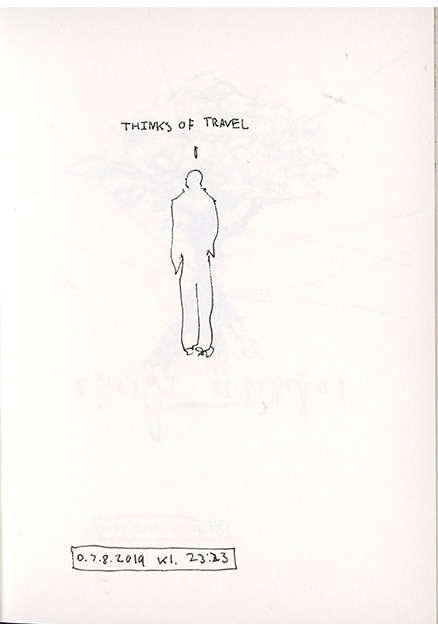 THINKS OF TRAVEL
D.7.8.2019 Kl. 23:23